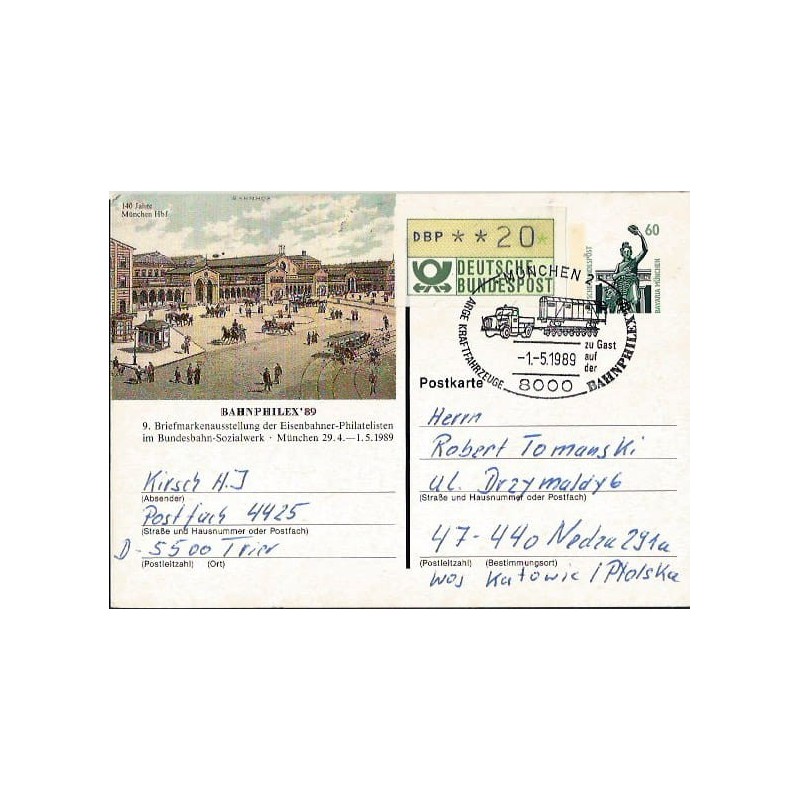 BAHNHOF
140 Jahre
München Hbf
BAHNPHILEX'89
9. Briefmarkenausstellung der Eisenbahner-Philatelisten
im Bundesbahn-Sozialwerk · München 29.4.—1.5.1989
Kirsch H.J
(Absender)
Postfach 4425
(Straße und Hausnummer oder Postfach)
D-5500 Trier
(Postleitzahl) (Ort)
DBP **20*
DEUTSCHE
BUNDESPOST
60
BAVARIA MÜNCHEN
MÜNCHEN 2
ARGE KRAFTFAHRZEUGE
zu Gast
auf
der
BAHNPHILEX
-1.-5.1989
8000
Postkarte
Herrn
Robert Tomanski
ul. Drzymaldy 6
(Straße und Hausnummer oder Postfach)
47-440 Nedza 291a
(Postleitzahl) (Bestimmungsort)
woj Katowic / Polska